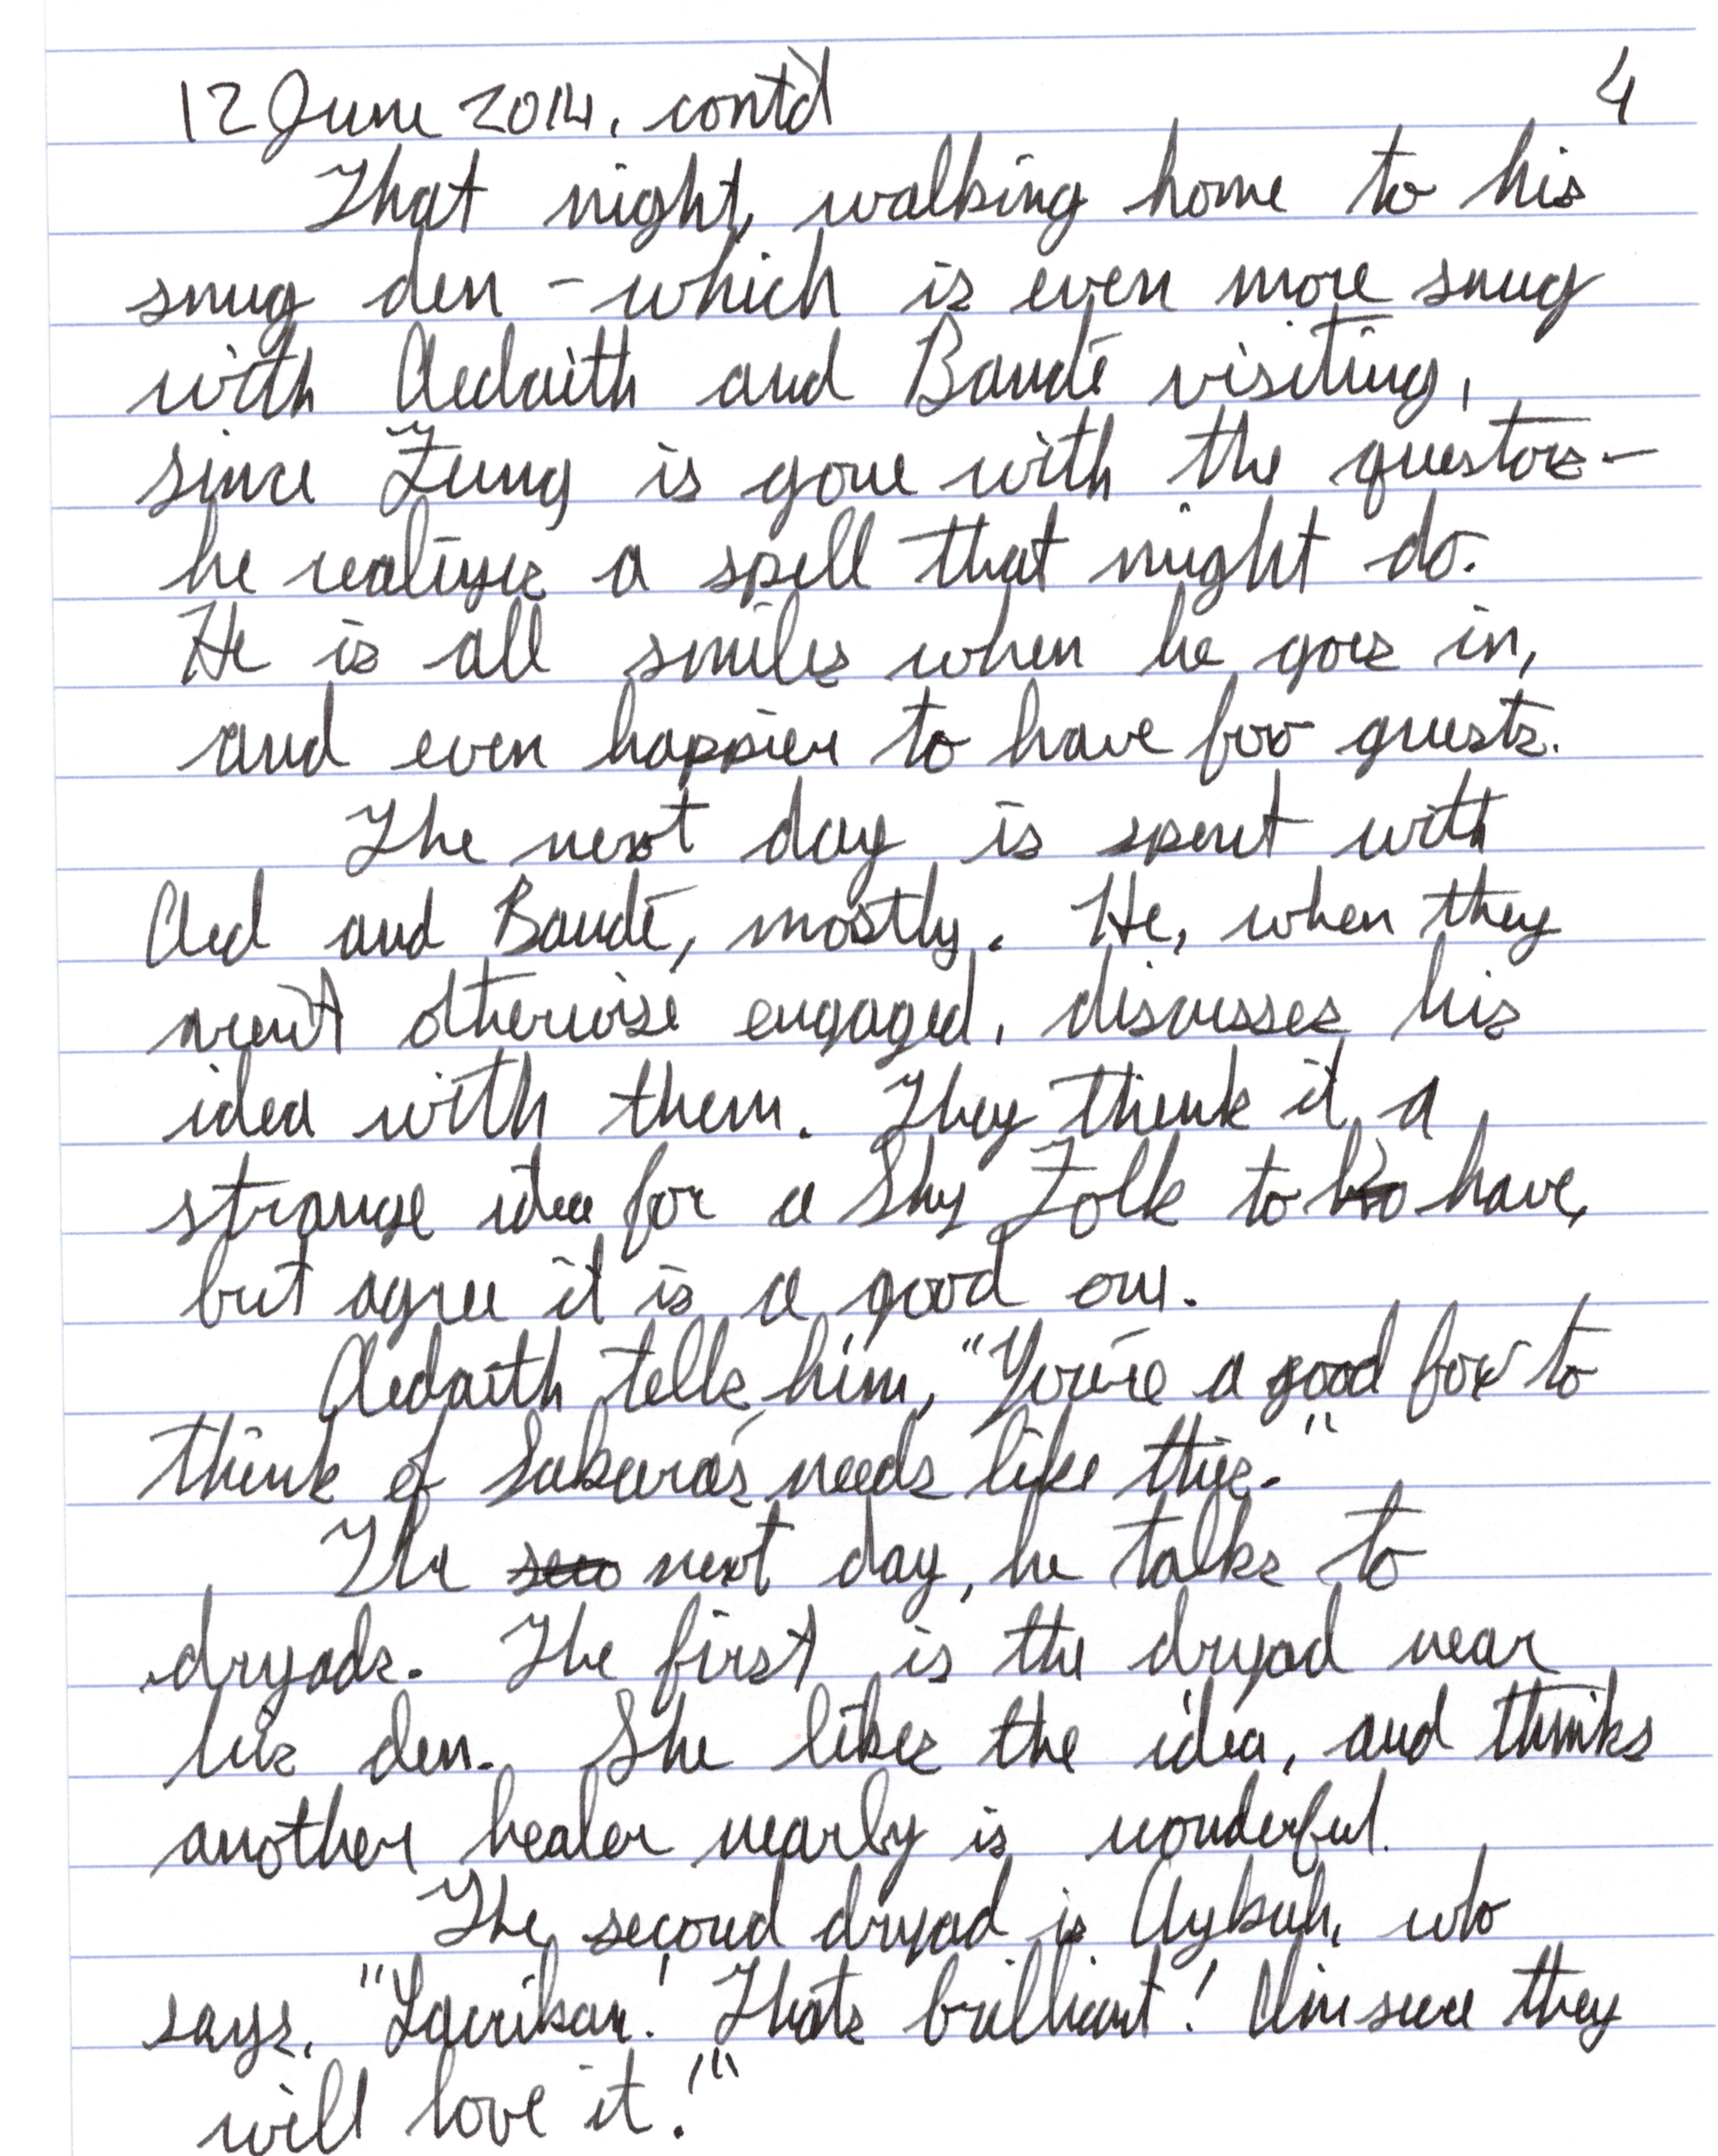 12 June 2014, cont'd 4
That night, walking home to his
snug den - which is even more snug
with Aedaith and Baudé visiting,
since Fung is gone with the questors -
he realizes a spell that might do.
He is all smiles when he goes in,
and even happier to have fox guests.
The next day is spent with
Aed and Baudé, mostly. He, when they
aren't otherwise engaged, discusses his
idea with them. They think it a
strange idea for a Shy Folk to have,
but agree it is a good one.
Aedaith tells him, "You're a good fox to
think of Sakura's needs like this."
The next day, he talks to
dryads. The first is the dryad near
his den. She likes the idea, and thinks
another healer nearby is wonderful.
The second dryad is who
says, " ! That's brilliant! sure they
will love it!"